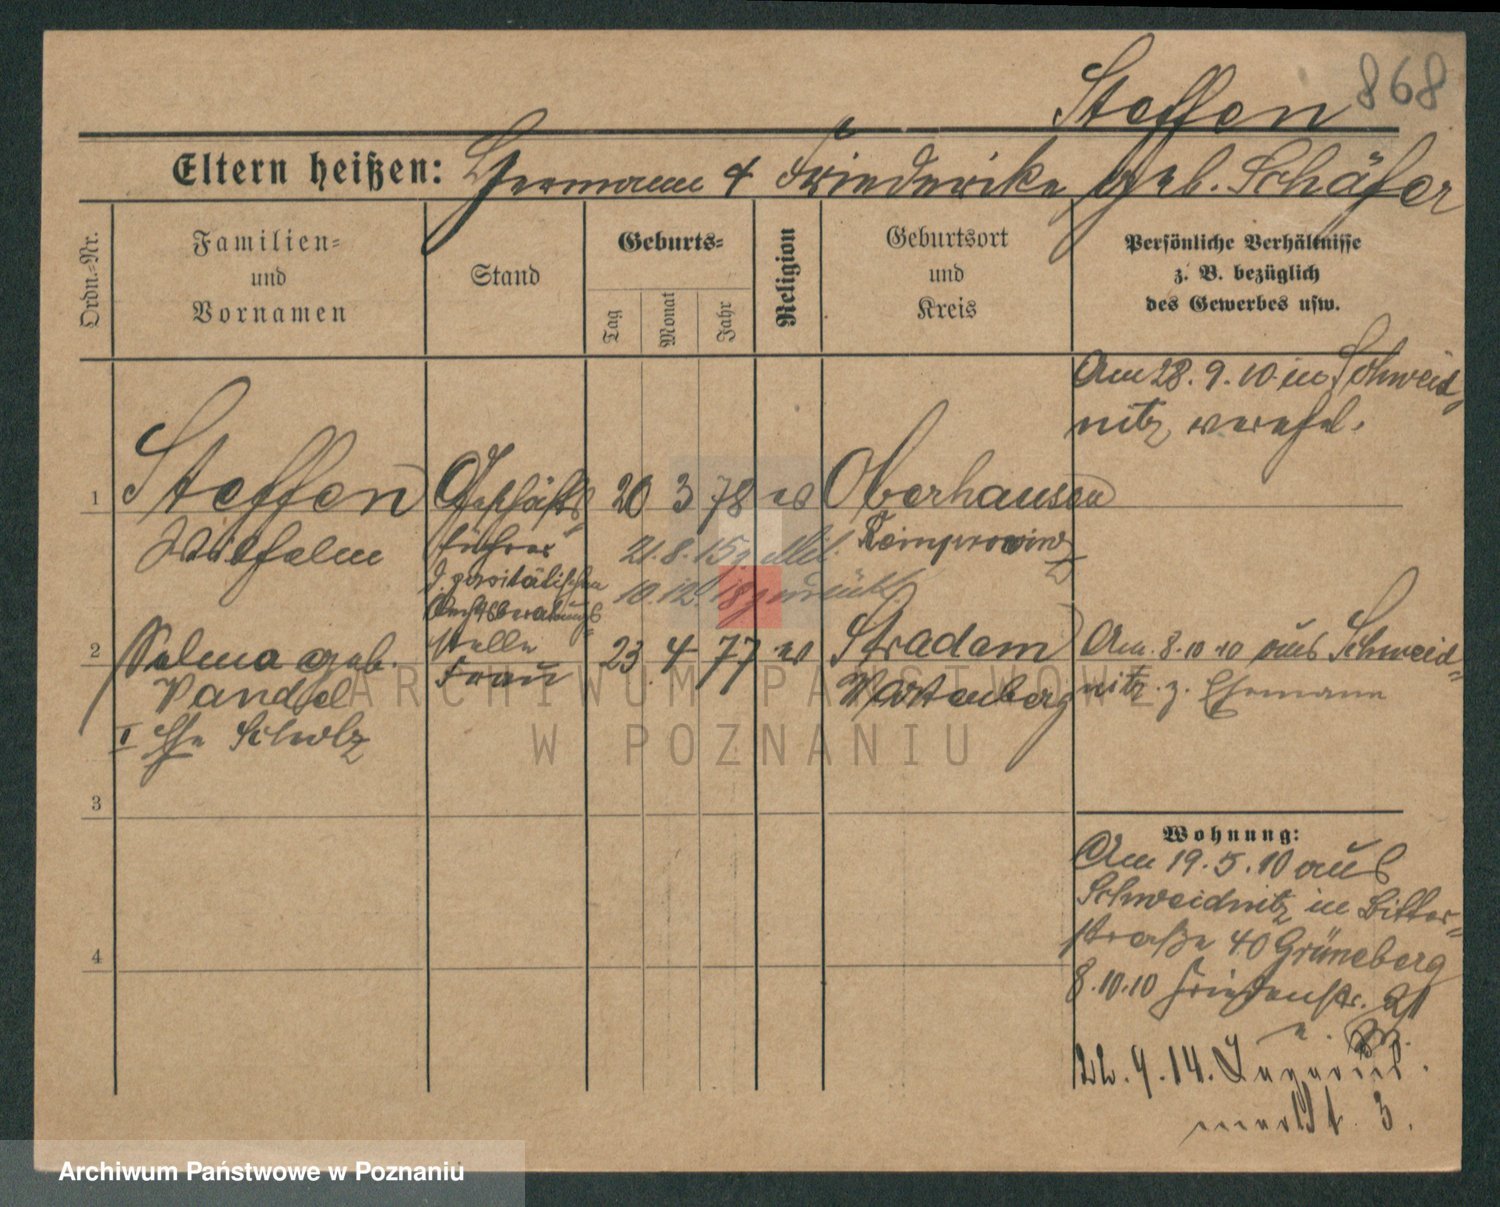 868
Steffen
Eltern heißen: Hermann & Friederike geb. Schäfer
Ordn.-Nr.
Familien-
und
Vornamen
Stand
Geburts-
Tag
Monat
Jahr
Religion
Geburtsort
und
Kreis
Persönliche Verhältnisse
z. B. bezüglich
des Gewerbes usw.
Am 28. 9. 10 in Schweid
nitz verehel.
1 Steffen Geschäfts 20 3 78 ev Oberhausen
Wilhelm führer 21. 8. 15 z. Mil. Reinprovinz
10. 12. 18 zurück
stelle
2 Selma geb. Frau 23 4 77 ev Stradam
Wartenberg
I Ehe Scholz
Am 8. 10 10 aus Schweid-
nitz z. Ehemann
3
4
Wohnung:
Am 19. 5. 10 aus
Schweidnitz in Ritter-
straße 40 Grüneberg
8. 10. 10 Friedenstr. 21
22. 9. 14.
markt 3.
ARCHIWUM PAŃSTWOWE
W POZNANIU
Archiwum Państwowe w Poznaniu